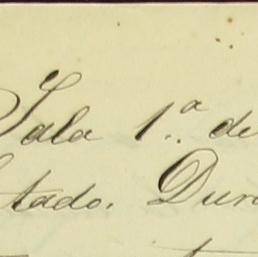 Sala 1.ª de
tado. Dura